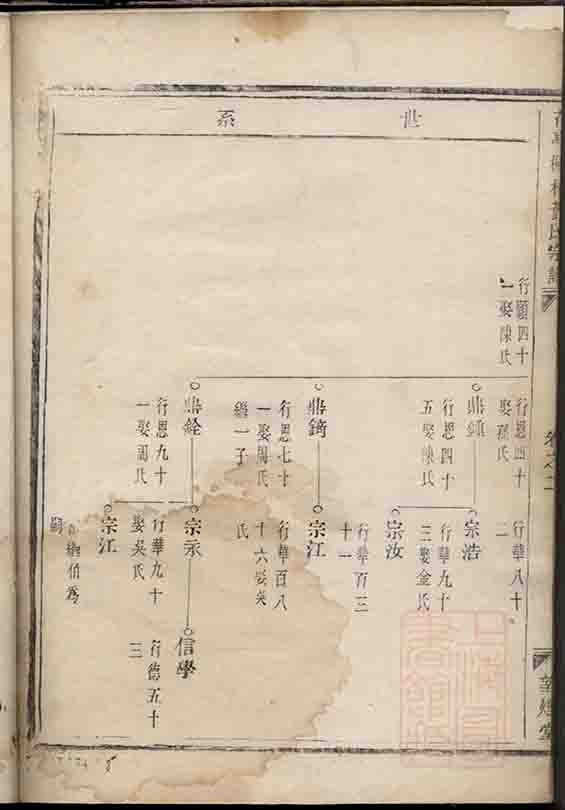 世系
行願四十
一娶陳氏
行恩四十
娶孫氏
鼎鎮
行恩四十
五娶陳氏
鼎錡
行恩七十
一娶周氏
繼一子
鼎銓
行恩九十
一娶周氏
行華八十
二
宗浩
行華九十
三娶金氏
宗汝
行華百三
十一
宗江
行華百八
十六娶吳
氏
宗永
行華九十
娶吳氏
宗江
繼伯為
嗣
信學
行德五十
三
氏宗譜
卷之二
堂